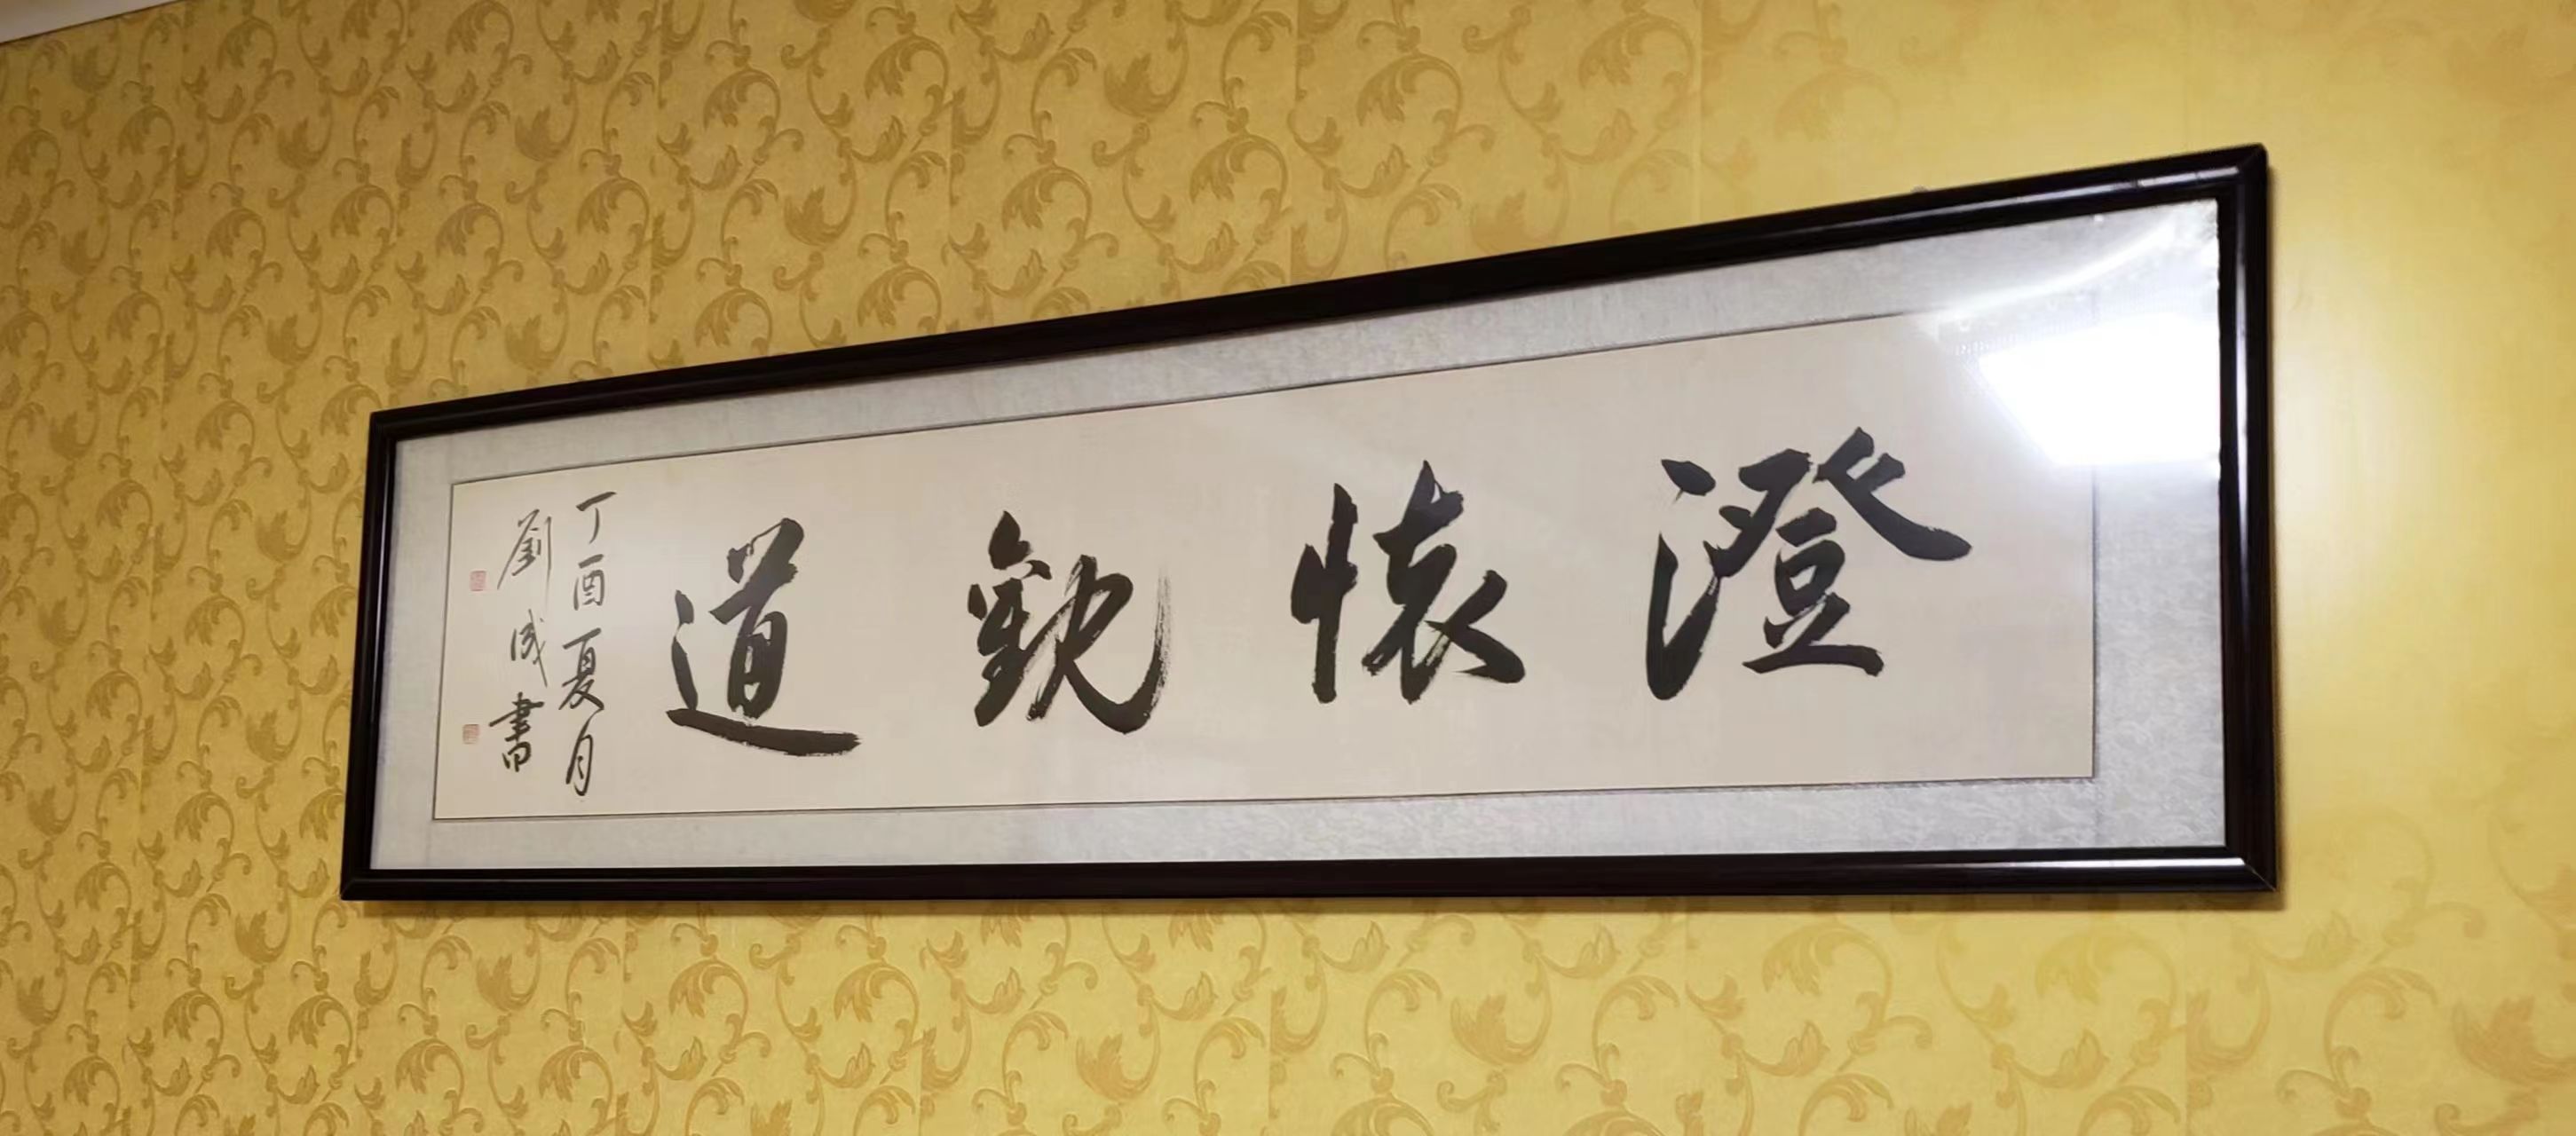 澄懷觀道
丁酉夏月
劉成書